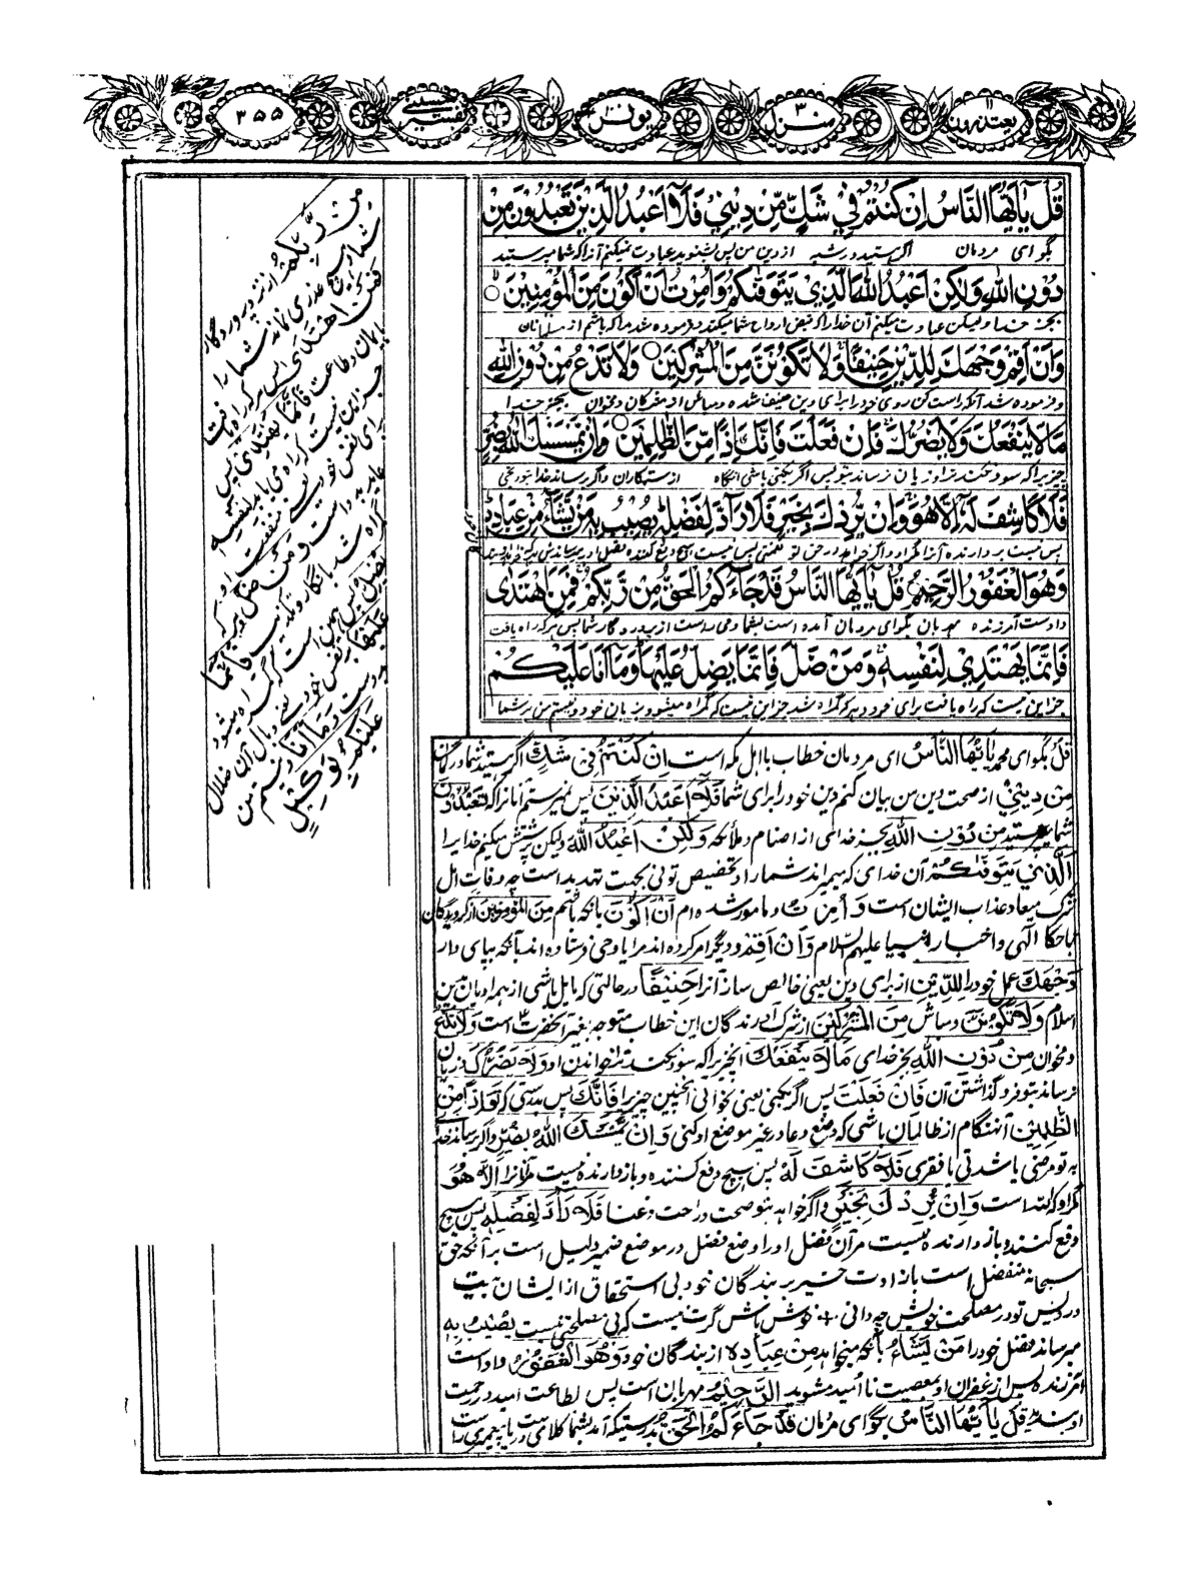 یعتذرون ۱۱
منزل ۳
یونس ۱۰
تفسیر حسینی
۳۵۵
قُلْ يٰاَيُّهَا النَّاسُ اِنْ كُنْتُمْ فِيْ شَكٍّ مِّنْ دِيْنِيْ فَلَآ اَعْبُدُ الَّذِيْنَ تَعْبُدُوْنَ مِنْ
بگو ای مردمان اگر هستید در شبه از دین من پس بشنوید عبادت نمیکنم آنرا که شما میپرستید
دُوْنِ اللّٰهِ وَلٰكِنْ اَعْبُدُ اللّٰهَ الَّذِيْ يَتَوَفّٰىكُمْ وَاُمِرْتُ اَنْ اَكُوْنَ مِنَ الْمُؤْمِنِيْنَ ○
بجز خدا ولیکن عبادت میکنم آن خدا را که قبض ارواح شما میکند و فرموده شد مرا که باشم از مسلمانان
وَاَنْ اَقِمْ وَجْهَكَ لِلدِّيْنِ حَنِيْفًا وَلَا تَكُوْنَنَّ مِنَ الْمُشْرِكِيْنَ ○ وَلَا تَدْعُ مِنْ دُوْنِ اللّٰهِ
و فرموده شد آنکه راست کن روی خود را برای دین حنیف شده و مباش از مشرکان و مخوان بجز خدا
مَا لَا يَنْفَعُكَ وَلَا يَضُرُّكَ فَاِنْ فَعَلْتَ فَاِنَّكَ اِذًا مِّنَ الظّٰلِمِيْنَ ○ وَاِنْ يَّمْسَسْكَ اللّٰهُ بِضُرٍّ
چیزیرا که سود نکند ترا و زیان نرساند بتو پس اگر بکنی باشی آنگاه از ستمکاران و اگر برساند خدا بتو رنجی
فَلَا كَاشِفَ لَهٗٓ اِلَّا هُوَ وَاِنْ يُّرِدْكَ بِخَيْرٍ فَلَا رَآدَّ لِفَضْلِهٖ يُصِيْبُ بِهٖ مَنْ يَّشَآءُ مِنْ عِبَادِهٖ
پس نیست بردارنده آنرا مگر او و اگر خواهد در حق تو نعمتی پس نیست هیچ دفع کننده فضل او
وَهُوَ الْغَفُوْرُ الرَّحِيْمُ قُلْ يٰاَيُّهَا النَّاسُ قَدْ جَآءَكُمُ الْحَقُّ مِنْ رَّبِّكُمْ فَمَنِ اهْتَدٰى
و اوست آمرزنده مهربان بگو ای مردمان آمده است بشما وحی راست از پروردگار شما پس هر که راه یافت
فَاِنَّمَا يَهْتَدِيْ لِنَفْسِهٖ وَمَنْ ضَلَّ فَاِنَّمَا يَضِلُّ عَلَيْهَا وَمَآ اَنَا عَلَيْكُمْ
جز این نیست که راه یافت برای خود و هر که گمراه شد جز این نیست که گمراه میشود بر زیان خود و نیستم من بر شما
قُلْ بگو ای محمد يٰاَيُّهَا النَّاسُ ای مردمان خطاب با اهل مکه است اِنْ كُنْتُمْ فِيْ شَكٍّ اگر هستید شما در گمان
مِنْ دِيْنِيْ از صحت دین من بیان کنم دین خود را برای شما فَلَآ اَعْبُدُ الَّذِيْنَ پس نمیپرستم آنانرا که تَعْبُدُوْنَ
شما میپرستید مِنْ دُوْنِ اللّٰهِ بجز خدای از اصنام و ملائکه وَلٰكِنْ اَعْبُدُ اللّٰهَ ولیکن پرستش میکنم خدایرا
الَّذِيْ يَتَوَفّٰىكُمْ آن خدای که بمیراند شما را و تخصیص توفی بجهت تهدید است چه وفات اهل
شرک میعاد عذاب ایشان است وَاُمِرْتُ و مامور شده ام اَنْ اَكُوْنَ بانکه باشم مِنَ الْمُؤْمِنِيْنَ از گرویدگان
باحکام الٰهی و اخبار انبیا علیهم السلام وَاَنْ اَقِمْ و دیگر امر کرده اند مرا یا وحی فرستاده اند بآنکه بپای دار
وَجْهَكَ عمل خود را لِلدِّيْنِ از برای دین یعنی خالص ساز آنرا حَنِيْفًا در حالتی که مایل باشی از همه ادیان بدین
اسلام وَلَا تَكُوْنَنَّ و مباش مِنَ الْمُشْرِكِيْنَ از شرک آرندگان این خطاب متوجه بغیر آنحضرت است وَلَا تَدْعُ
و مخوان مِنْ دُوْنِ اللّٰهِ بجز خدای مَا لَا يَنْفَعُكَ آنچیزیرا که سود نکند ترا خواندن او وَلَا يَضُرُّكَ و زیان
نرساند بتو فرو گذاشتن آن فَاِنْ فَعَلْتَ پس اگر بکنی یعنی بخوانی آنچنین چیزیرا فَاِنَّكَ پس بدرستی که تو اِذًا مِّنَ
الظّٰلِمِيْنَ آنهنگام از ظالمان باشی که وضع دعا در غیر موضع او کنی وَاِنْ يَّمْسَسْكَ اللّٰهُ بِضُرٍّ و اگر برساند خدای
به تو مرضی یا شدتی یا فقری فَلَا كَاشِفَ لَهٗ پس هیچ دفع کننده و باز دارنده نیست مر آنرا اِلَّا هُوَ
مگر او که الله است وَاِنْ يُّرِدْكَ بِخَيْرٍ و اگر خواهد بتو صحت و راحت و غنا فَلَا رَآدَّ لِفَضْلِهٖ پس هیچ
دفع کننده و باز دارنده نیست مر آن فضل او را وضع فضل در موضع ضمیر دلیل است بر آنکه حق
سبحانه متفضل است بارادت خیر بر بندگان خود بی استحقاق از ایشان بیت
میرساند بفضل خود را مَنْ يَّشَآءُ بآنکه میخواهد مِنْ عِبَادِهٖ از بندگان خود وَهُوَ الْغَفُوْرُ و او است
آمرزنده پس از غفران او بمعصیت ناامید مشوید الرَّحِيْمُ مهربان است پس بطاعت امید در رحمت
او بندید قُلْ يٰاَيُّهَا النَّاسُ بگو ای مردمان قَدْ جَآءَكُمُ الْحَقُّ بدرستیکه آمد بشما کلامی درست یا پیغمبری راست
مِنْ رَّبِّكُمْ از نزد پروردگار
شما و هیچ عذری نمانده شما را
فَمَنِ اهْتَدٰى پس هر که راه یافت
بایمان و طاعت فَاِنَّمَا يَهْتَدِيْ پس
جز این نیست که راه می یابد لِنَفْسِهٖ
برای نفس خود یعنی منفعت او
عاید بدو است وَمَنْ ضَلَّ و هر که
گمراه شد بانکار و تکذیب فَاِنَّمَا
يَضِلُّ پس همین است که گمراه میشود
عَلَيْهَا بر نفس خود یعنی وبال آن ضلال
بر دست وَمَآ اَنَا و نیستم من
عَلَيْكُمْ بِوَكِيْلٍ